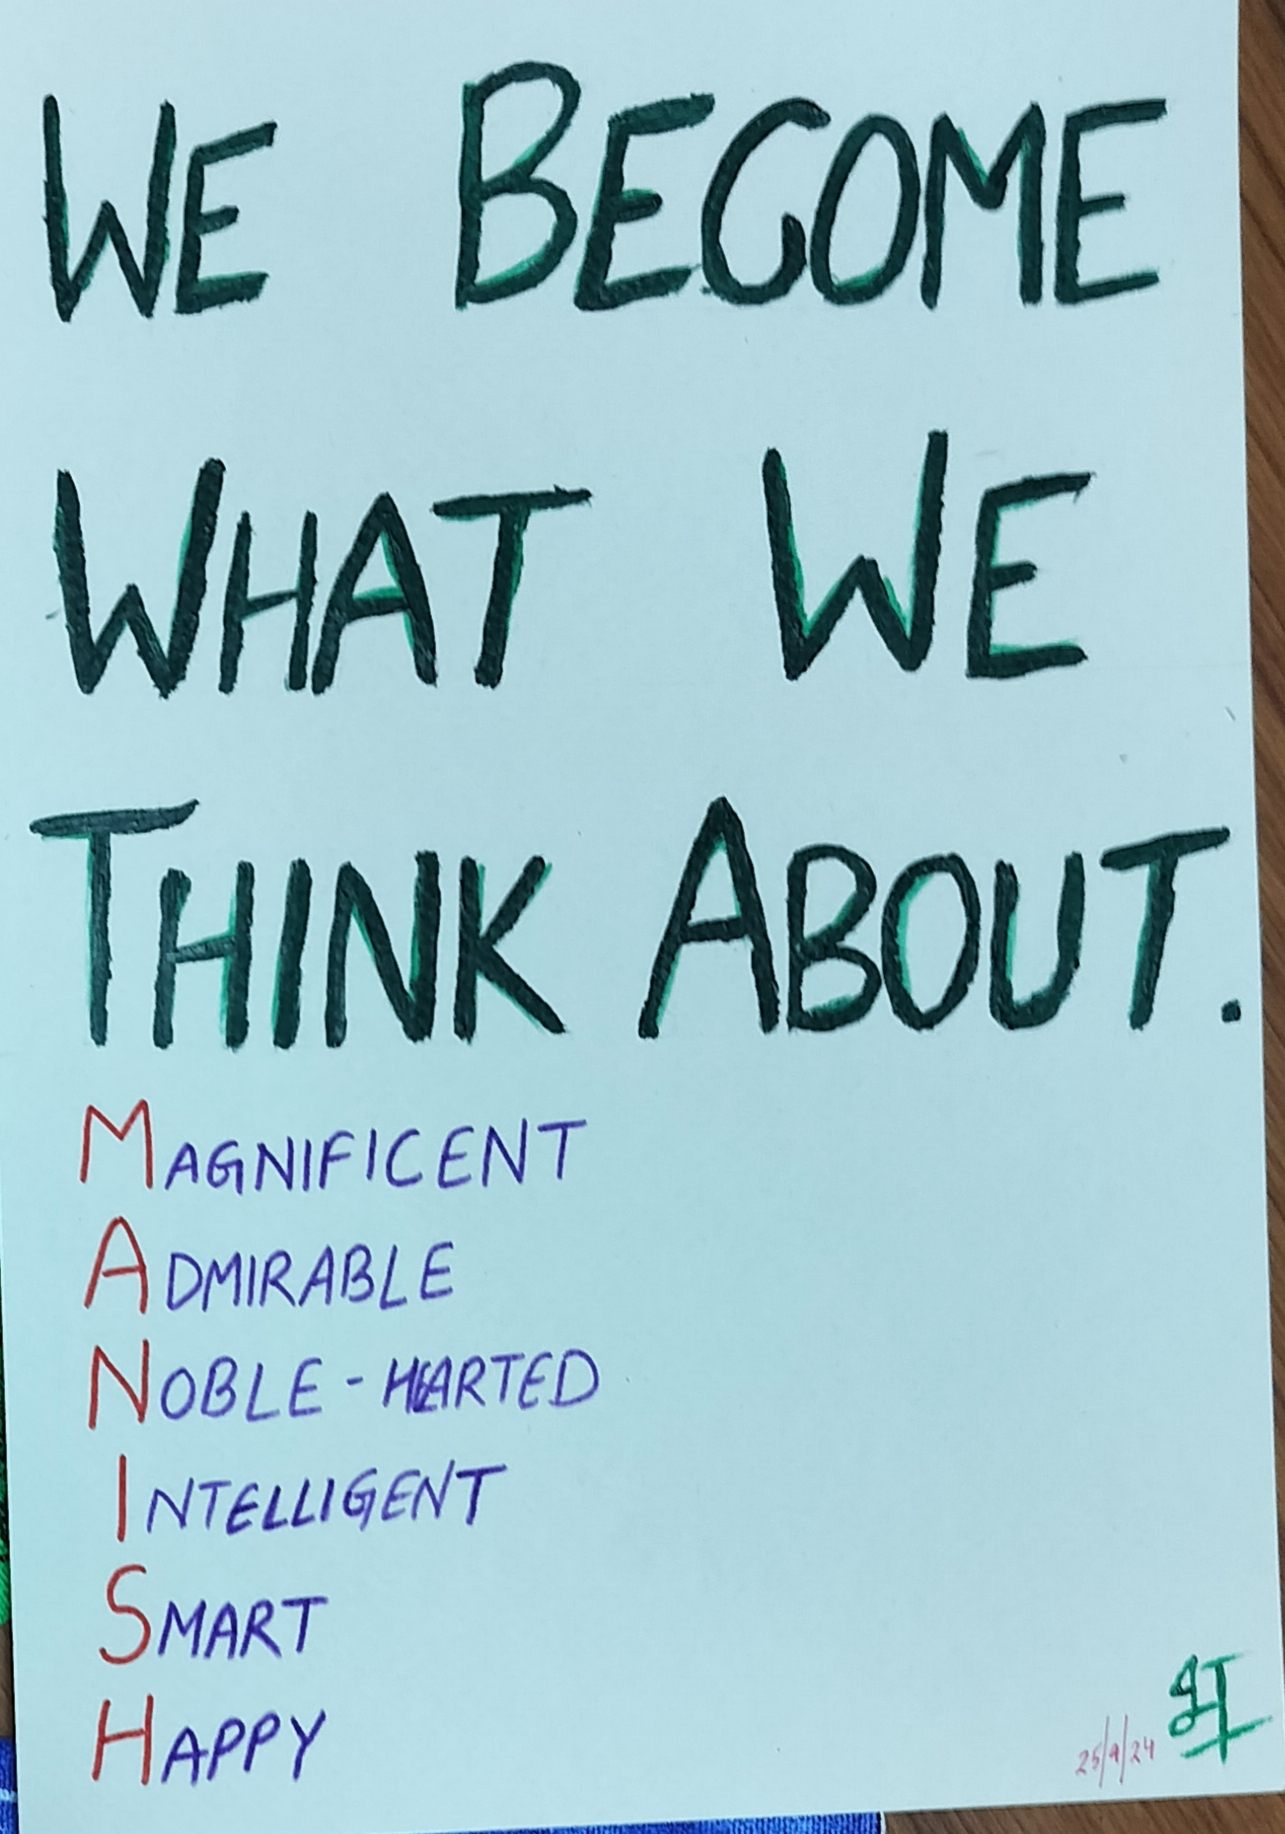 WE BECOME
WHAT WE
THINK ABOUT.
MAGNIFICENT
ADMIRABLE
NOBLE-HEARTED
INTELLIGENT
SMART
HAPPY
25/9/24